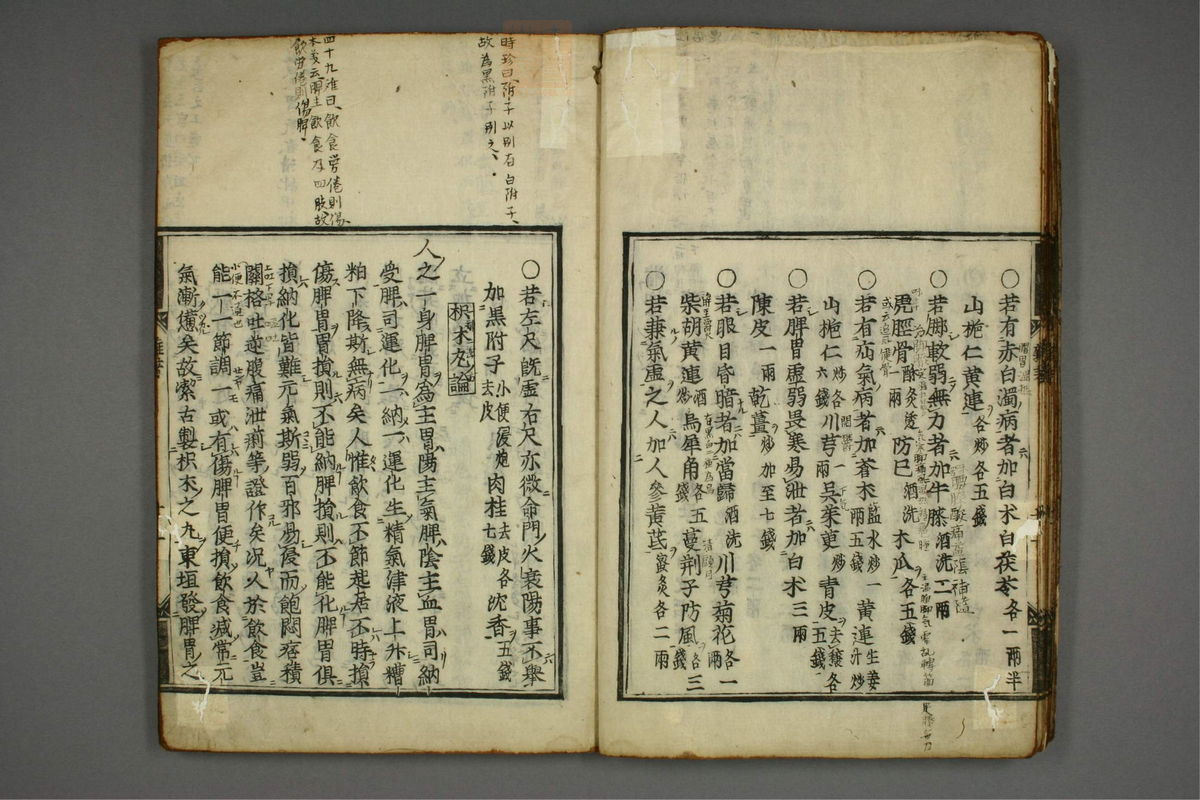 ○若有赤白濁病者加白朮白茯苓各一兩半
山梔仁黄連各炒各五錢
○若脚軟弱無力者加牛膝酒洗二兩
虎脛骨酥炙透一兩防已酒洗木瓜各五錢
○若有疝氣病者加蒼朮鹽水炒一兩五錢黄連生姜汁炒
山梔仁炒各六錢川芎一兩吳茱萸炒青皮去穰各五錢
○若脾胃虛弱畏寒易泄者加白朮三兩
陳皮一兩乾薑炒加至七錢
○若眼目昏暗者加當歸酒洗川芎菊花各一兩
柴胡黄連酒炒烏犀角各五錢蔓荆子防風各三錢
○若兼氣虛之人加人參黄芪蜜炙各二兩
○若左尺既虛右尺亦微命門火衰陽事不舉
加黑附子小便浸炮去皮肉桂去皮各七錢沈香五錢
枳朮丸論
人之一身脾胃爲主胃陽主氣脾陰主血胃司納
受脾司運化一納一運化生精氣津液上升糟
粕下降斯無病矣人惟飲食不節起居不時損
傷脾胃胃損則不能納脾損則不能化脾胃俱
損納化皆難元氣斯弱百邪易侵而飽悶痞積
關格吐逆腹痛泄痢等證作矣况人於飲食豈
能一一節調一或有傷脾胃便損飲食減常元
氣漸憊矣故潔古製枳朮之丸東垣發脾胃之
時珍曰附子以別有白附子、
故爲黑附子別之、
四十九难曰、飲食勞倦則傷
本義云脾主飲食及四肢故
飲勞倦則傷脾